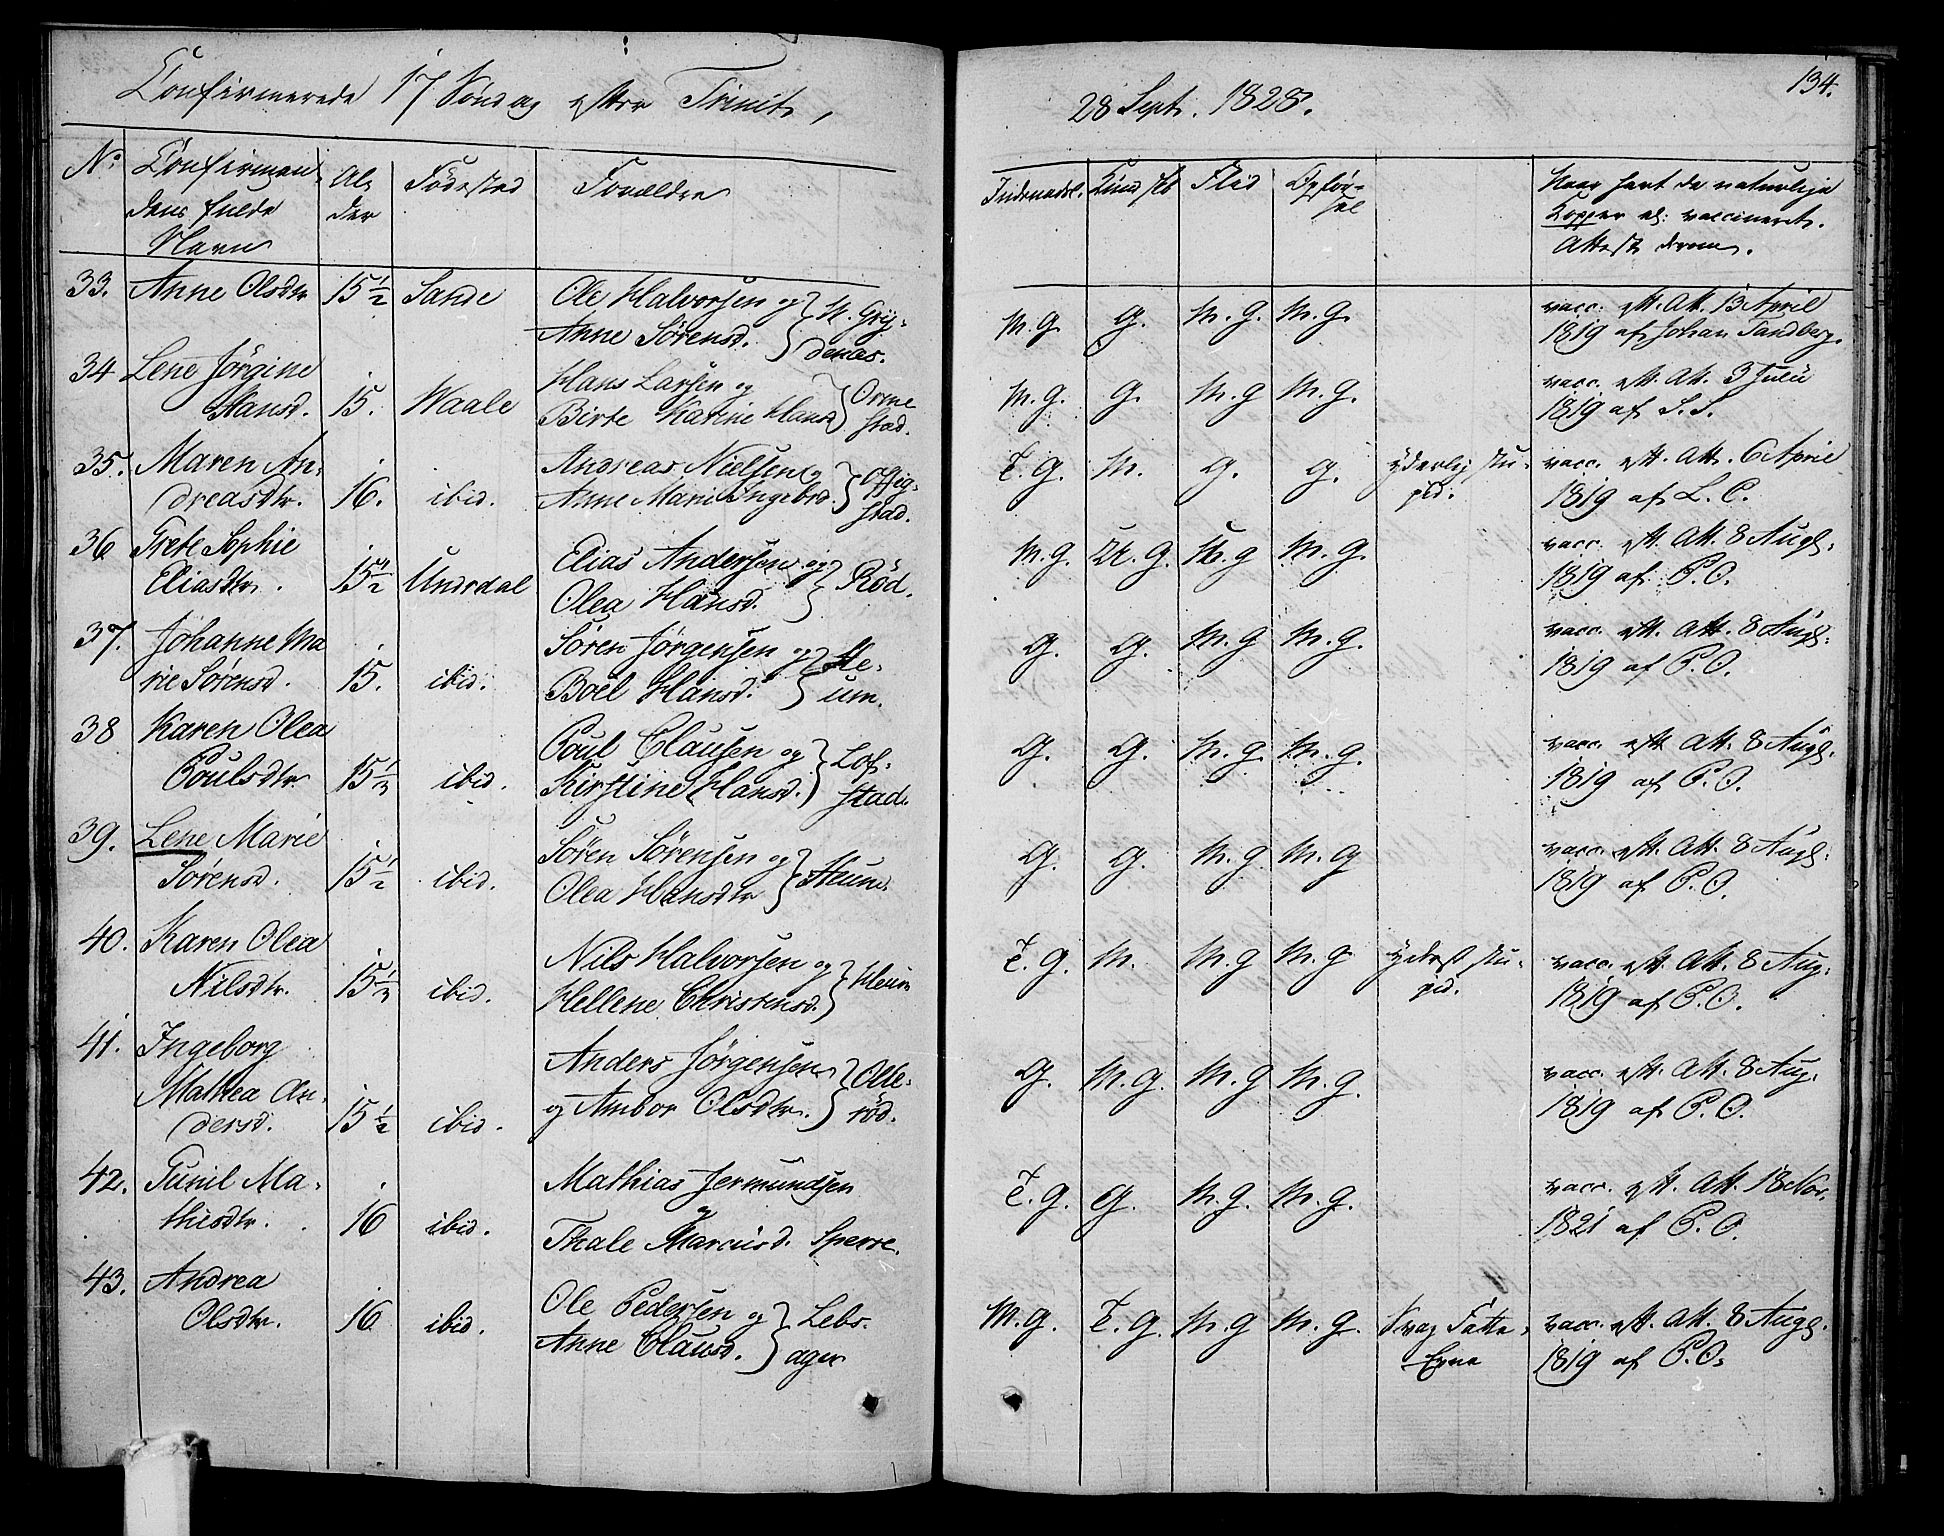 Confirmerede 17 Söndag efter Trinit,
28 Sept. 1828.
134.
No Confirman- Al- Födested Forældre
dens fulde der
Navn
Indenadsl. Kundsk Flid Opför-
sel
Naar havt de naturlige
Kopper el. vaccineret.
Attest derom.
33. Anne Olsdtr 15½ Sande Ole Halvorsen og
Anne Sørensd. N. Gry-
denæs.
M. G. G. M. G. M. G. vacc. eft. Att. 13 April
1819 af Johan Sandberg.
34 Lene Jörgine
Hansd. 15. Waale Hans Larsen og
Birte Karine Hansd Orme
stad.
M. G. G. M. G M. G. vacc. eft. Att. 3 Julii
1819 af S. S.
35. Maren An-
dreasdtr. 16. ibid. Andreas Nielsen og
Anne Marie Ingebrd. Offig-
stad.
T. G. M. G. G. yderlig stu-
pid. vacc. eft. Att. 6 April
1819 af L. C.
36 Grete Sophie
Eliasdtr. 15½ Undrdal Elias Andersen og
Olea Hansd. Röd.
M. G. M. G. M. G M. G. vacc. eft. Att. 8 Aug.
1819 af P. O.
37. Johanne Ma
rie Sørensd. 15. ibid. Søren Jørgensen og
Boel Hansd. He-
um.
G. G. M. G M. G. vacc. eft. Att. 8 Aug.
1819 af P. O.
38 Karen Olea
Poulsdtr. 15½ ibid. Poul Clausen og
Kirstine Hansd. Lof-
stad.
G. G. M. G M. G. vacc. eft Att. 8 Aug.
1819 af P. O.
39. Lene Marie
Sørensd. 15½ ibid. Søren Sørensen og
Olea Hansdtr Heum.
G. G. M. G M. G vacc. eft. Att. 8 Aug.
1819 af P. O.
40. Karen Olea
Nilsdtr. 15½ ibid. Nils Halvorsen og
Hellene Christensd. Heum
T. G. M. M. G M. G yderst stu-
pid. vacc. eft. Att. 8 Aug.
1819 af P. O.
41. Ingeborg
Mathea An-
dersd. 15½ ibid. Anders Jørgensen
og Ambor Olsdtr. Olle-
röd.
G. M. G. M. G M. G. vacc. eft. Att. 8 Aug.
1819 af P. O.
42. Gunil Ma-
thisdtr. 16 ibid. Mathias Jermundsen
og
Thale Marcusd. Sperre.
T. G. G. M. G. M. G. vacc. eft. Att. 18 Nov.
1821 af P. O.
43. Andrea
Olsdtr. 16 ibid. Ole Pedersen og
Anne Clausd. Lebs-
ager
M. G. T. G. M. G M. G. Svag Fatte-
Evne vacc. eft. Att. 8 Aug.
1819 af P. O.